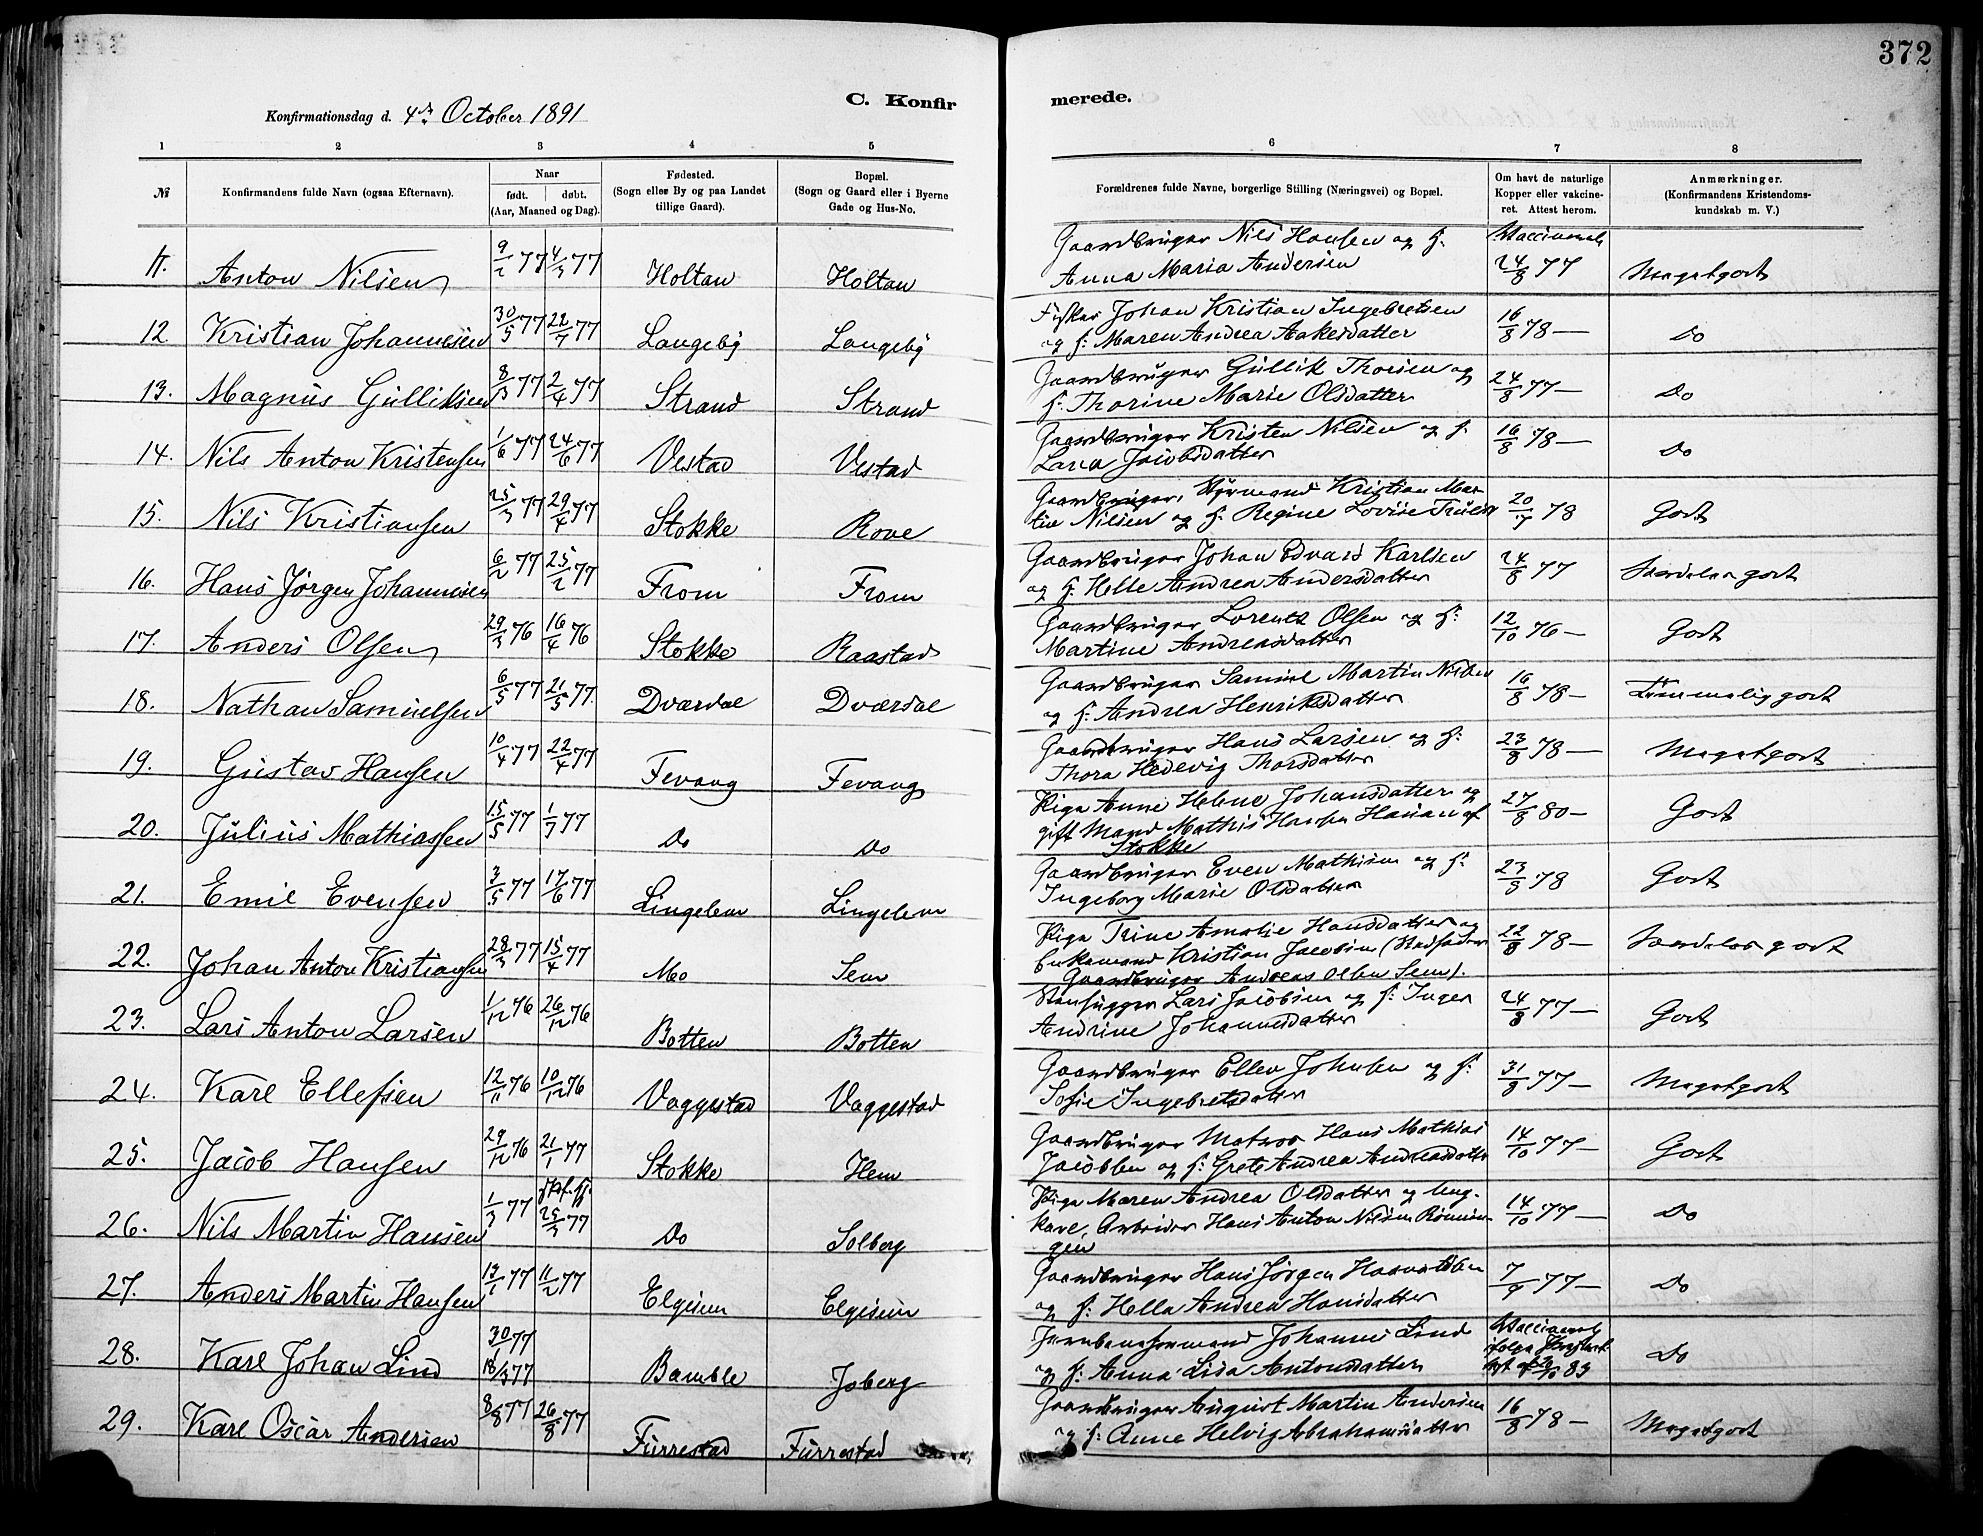 372
C. Konfir merede.
Konfirmationsdag d. 4de October 1891
1 2 3 4 5 6 7 8
№ Konfirmandens fulde Navn (ogsaa Efternavn). Naar født. døbt. (Aar, Maaned og Dag). Fødested. (Sogn eller By og paa Landet tillige Gaard). Bopæl. (Sogn og Gaard eller i Byerne Gade og Hus-No. Forældrenes fulde Navne, borgerlige Stilling (Næringsvei) og Bopæl. Om havt de naturlige Kopper eller vakcineret. Attest herom. Anmærkninger. (Konfirmandens Kristendomskundskab m. V.)
11. Anton Nilsen 9/2 77 4/3 77 Holtan Holtan Gaardbruger Nils Hansen og H: Vaccinerede
Anna Maria Andersen 24/8 77 Megetgodt
12 Kristian Johannesen 30/5 77 22/7 77 Langeby Langeby Fisker Johan Kristian Ingebretsen 16/8 78 — Do
og H: Maren Andrea Aakesdatter
13. Magnus Gulliksen 8/3 77 2/4 77 Strand Strand Gaardbruger Gullik Thorsen og 24/8 77 — Do
H: Thorine Marie Olsdatter
14. Nils Anton Kristensen 1/6 77 24/6 77 Vestad Vestad Gaardbruger Kristen Nilsen og H. 16/8 78 — Do
Lava Jacobsdatter
15. Nils Kristiansen 25/3 77 29/4 77 Stokke Rove Gaardbruger, Styrmand Kristian Mar-
tin Nilsen og H: Regine Lovise Trulsen 20/7 78 Godt
16. Hans Jørgen Johannesen 6/2 77 25/2 77 From From Gaardbruger Johan Edvard Karlsen 24/8 77 Særdeles godt
og H: Helle Andrea Andersdatter
17. Anders Olsen 29/3 76 16/4 76 Stokke Raastad Gaardbruger Lorents Olsen og H: 12/10 76 — Godt
Martine Andreasdatter
18. Nathan Samuelsen 6/5 77 21/5 77. Dværdal Dværdal Gaardbruger Samuel Martin Nilsen 16/8 78 — Temmelig godt
og H: Andrea Henriksdatter
19. Gustav Hansen 10/4 77 22/4 77 Fevang Fevang Gaardbruger Hans Larsen og H: 23/8 78 — Megetgodt
Thora Hedevig Thorsdatter
20. Julius Mathiassen 15/5 77 1/7 77 Do Do Pige Anne Helene Johansdatter og 27/8 80 — Godt
gift Mand Mathis Hansen af
Stokke
21. Emil Evensen 3/5 77 17/6 77 Lingelem Lingelem Gaardbruger Even Mathisen og H: 23/8 78 Godt
Ingeborg Marie Olsdatter
22. Johan Anton Kristiansen 28/3 77 15/4 77 Mo Sem Pige Trine Amalie Hansdatter og 22/8 78 — Særdeles godt
Enkemand Kristian Jacobsen (Stedfader
Gaardbruger Andreas Olsen Sem).
23. Lars Anton Larsen 1/12 76 26/12 76 Botten Botten Stenhugger Lars Jacobsen og H: Inger 24/8 77 — Godt
Andrine Johannesdatter
24. Karl Ellefsen 12/11 76 10/12 76 Vaggestad Vaggestad Gaardbruger Ellev Johnsen og H: 31/8 77 — Megetgodt
Sofie Ingebretsdatter
25. Jacob Hansen 29/12 76 21/1 77 Stokke Hem Gaardbruger Matros Hans Mathias 14/10 77 — Godt
Jacobsen og H: Grete Andrea Andreasdatter
26. Nils Martin Hansen 1/3 77 25/3 77 Do Solberg Pige Maren Andrea Olsdatter og Ung-
karl, Arbeider Hans Anton Nilsen Rømmin- 14/10 77 — Do
gen
27. Anders Martin Hansen 13/1 77 11/2 77 Elgesem Elgesem Gaardbruger Hans Jørgen 7/9 77 — Do
og H: Hella Andrea Hansdatter
28. Karl Johan Lind 30/1 77 18/3 77 Bamble Joberg Jernbaneformand Johannes Lind Vaccinerede
og H: Anna Lisa Antonsdatter ifølge 83 Do
29. Karl Oscar Andersen 8/8 77 26/8 77 Furrestad Furrestad Gaardbruger August Martin Andersen 16/8 78 — Megetgodt
og H: Anne Helvig Abrahamsdatter